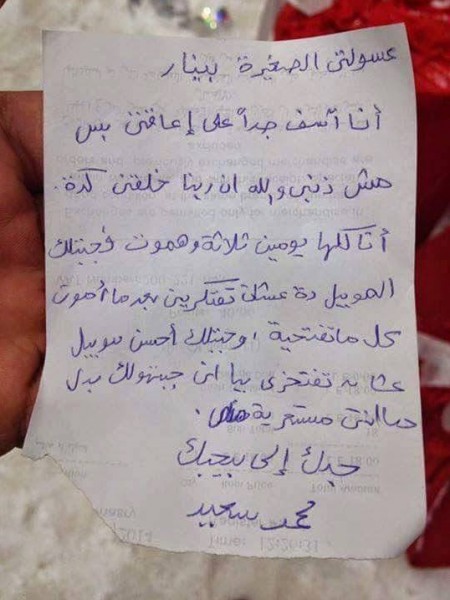 عسولتى الصغيرة بينار
أنا آسف جداً على إعاقتى بس
مش ذنبى والله ان ربنا خلقنى كدة.
أنا كلها يومين ثلاثة وهموت فجبتلك
الموبيل دة عشان تفتكرينى بعد ما أموت
كل ماتفتحية، وجبتلك أحسن موبيل
عشان تفتخرى بيا انى جبتهولك بدل
مانتى مستعرية منى.
حبك إلى بيحبك
محمد سعيد